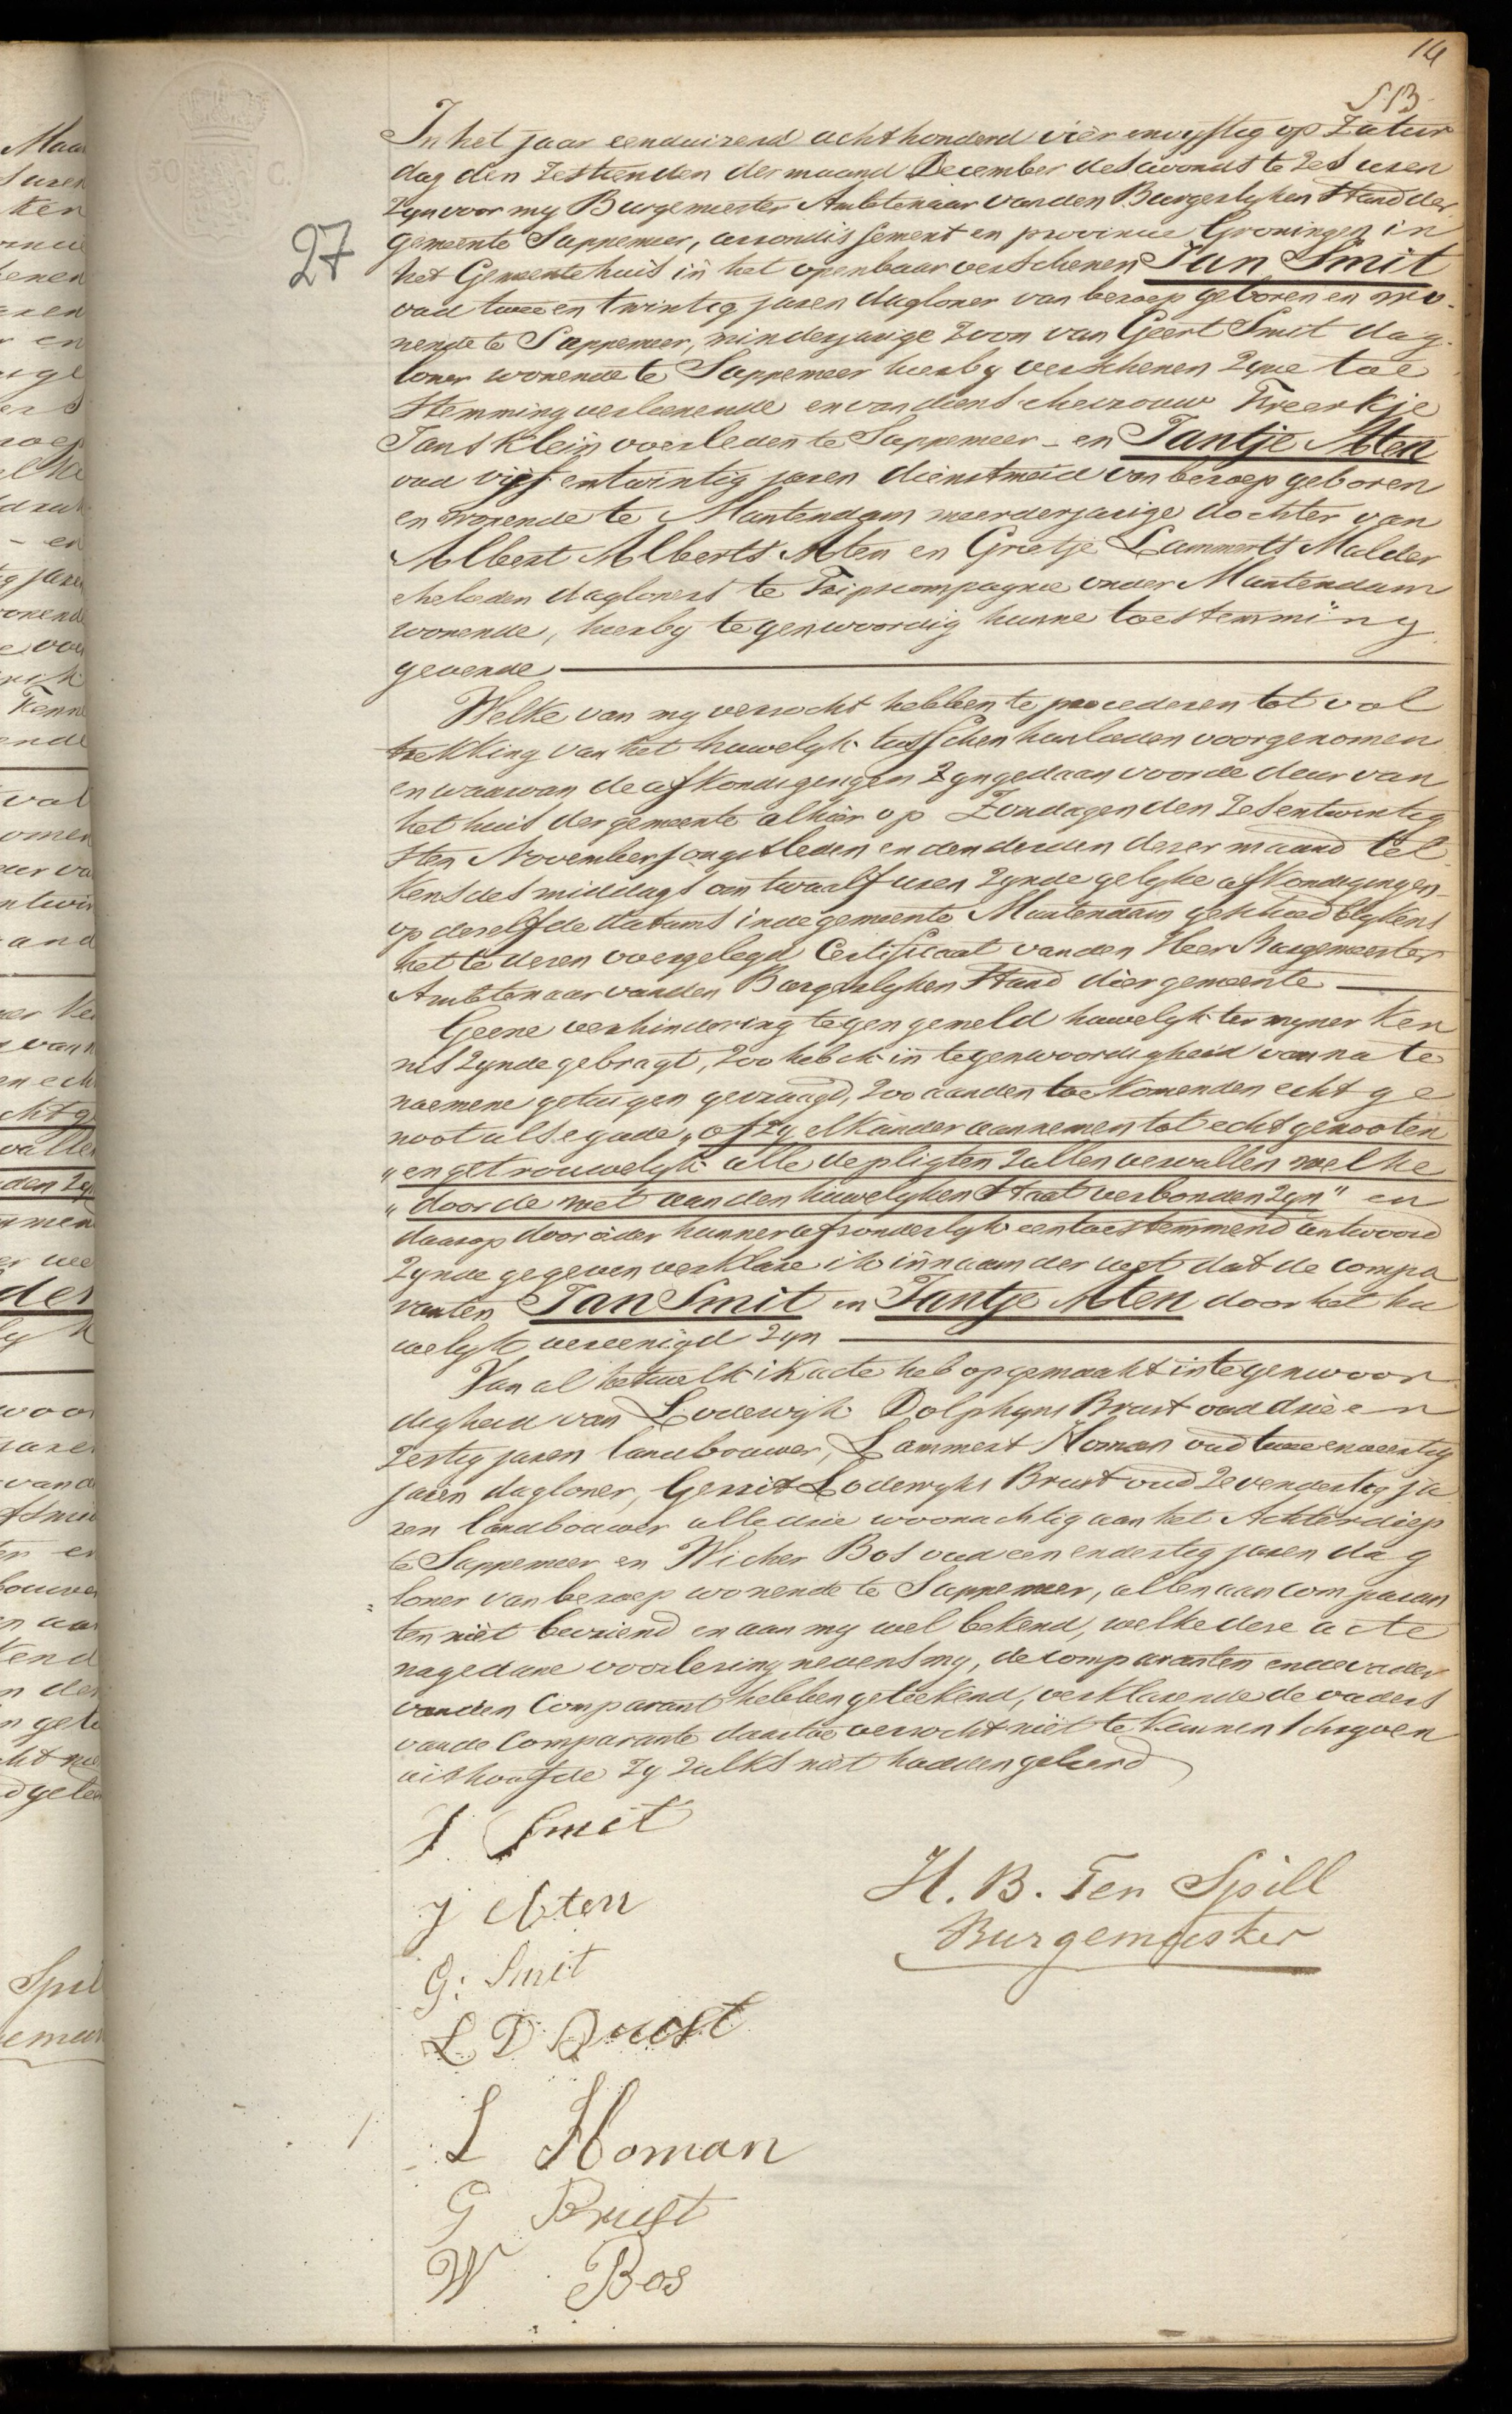 14
S. B.
27
In het jaar eenduizend achthonderd vier en vyftig op Zatur
dag den Zestienden der maand December des avonds te zes uren
zyn voor my Burgemeester Ambtenaar van den Burgerlyken Stand der
gemeente Sappemeer, arrondissement en provincie Groningen in
het Gemeentehuis in het openbaar verschenen Jan Smit
oud twee en twintig jaren dagloner van beroep geboren en wo
nende te Sappemeer, minderjarige zoon van Geert Smit dag
loner wonende te Sappemeer hierby verschenen zyne toe
stemming verleenende en van diens ehevrouw Freerkje
Jans Klein overleden te Sappemeer - en Jantje Aten
oud vyf entwintig jaren dienstmeid van beroep geboren
en wonende te Muntendam meerderjarige dochter van
Albert Alberts Aten en Grietje Lammerts Mulder
ehelieden dagloners te Tripscompagnie onder Muntendam
wonende, hierby tegenwoordig hunne toestemming
gevende
Welke van my verzocht hebben te procederen tot vol
trekking van het huwelyk tusschen hunlieden voorgenomen
en waarvan de afkondigingen zyn gedaan voor de deur van
het huis der gemeente alhier op Zondagen den zesentwintig
sten November jongstleden en den derden dezer maand tel
kens des middags om twaalf uren zynde gelyke afkondigingen
op dezelfde datums in de gemeente Muntendam geschied blykens
het te dezen overgelegd Certificaat van den Heer Burgemeester
Ambtenaar van den Burgerlyken Stand dier gemeente
Geene verhindering tegen gemeld huwelyk ter myner ken
nis zynde gebragt, zoo heb ik in tegenwoordigheid van na te
noemene getuigen gevraagd, zoo aan den toekomenden echtge
noot als egade, "of zy elkander aannemen tot echtgenooten
"en getrouwelyk alle de pligten zullen vervullen welke
"door de wet aan den huwelyken Staat verbonden zyn" en
daarop door ieder hunner afzonderlyk een toestemmend antwoord
zynde gegeven verklare ik in naam der wet dat de compa
ranten Jan Smit en Jantje Aten door het hu
welyk vereenigd zyn
Van al hetwelk ik acte heb opgemaakt in tegenwoor
digheid van Lodewyk Dolphyns Brust oud drie en
zestig jaren landbouwer, Lammert Homan oud twee en veertig
jaren dagloner, Gerrit Lodewyks Brust oud zevendertig ja
ren landbouwer alle drie woonachtig aan het Achterdiep
te Sappemeer en Wicher Bos oud een endertig jaren dag
loner van beroep wonende te Sappemeer, allen aan comparan
ten niet bevriend en aan my wel bekend, welke deze acte
na gedane voorlezing nevens my, de comparanten en de vader
van den Comparant hebben geteekend, verklarende de ouders
van de Comparante daartoe verzocht niet te kunnen schryven
uit hoofde zy zulks niet hadden geleerd
J Smit
J Aten
G: Smit
L D Brust
L Homan
G Brust
W Bos
H. B. Ten Spill
Burgemeester